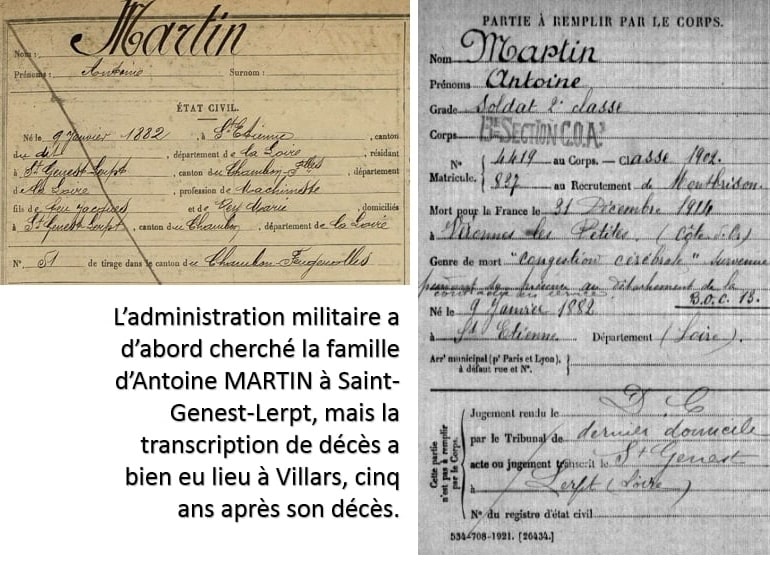 Martin
Nom :
Prénoms : Antoine Surnom :
ÉTAT CIVIL.
Né le 9 Janvier 1882, à St Etienne, canton
du dit, département de la Loire, résidant
à St Genest Lerpt, canton du Chambon-Flles, département
de la Loire, profession de Machiniste
fils de feu Jacques et de Rey Marie, domiciliés
à St Genest-Lerpt, canton du Chambon, département de la Loire
N° 51 de tirage dans le canton du Chambon-Feugerolles
L’administration militaire a
d’abord cherché la famille
d’Antoine MARTIN à Saint-
Genest-Lerpt, mais la
transcription de décès a
bien eu lieu à Villars, cinq
ans après son décès.
PARTIE À REMPLIR PAR LE CORPS.
Nom Martin
Prénoms Antoine
Grade Soldat 2e classe
Corps 13e SECTION C.O.A.
N° Matricule. 4419 au Corps. — Classe 1902.
827 au Recrutement de Montbrison
Mort pour la France le 31 Décembre 1914
à les Petites, (Côte d'Or)
Genre de mort "congestion cérébrale" survenue
pendant sa présence au détachement de la
B.O.C. 13.
Né le 9 Janvier 1882
à St Etienne Département (Loire)
Arrt municipal (pr Paris et Lyon),
à défaut rue et N°.
Cette partie n'est pas à remplir par le Corps.
Jugement rendu le D. C
par le Tribunal de dernier domicile
acte ou jugement transcrit le St Genest
à Lerpt (Loire)
N° du registre d'état civil
534-708-1921. [26434.]